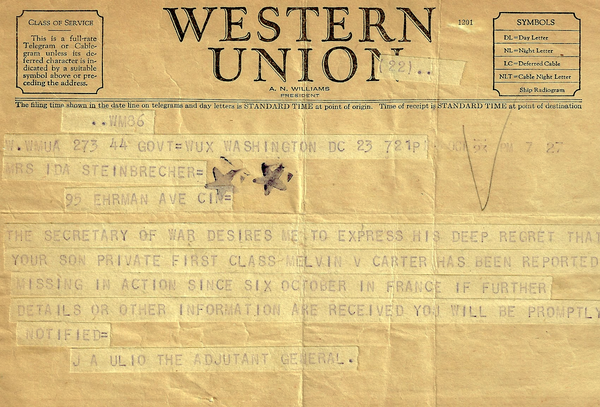 CLASS OF SERVICE
This is a full-rate
Telegram or Cable-
gram unless its de-
ferred character is in-
dicated by a suitable
symbol above or pre-
ceding the address.
WESTERN
UNION
A. N. WILLIAMS
PRESIDENT
1201
(22)..
SYMBOLS
DL=Day Letter
NL=Night Letter
LC=Deferred Cable
NLT=Cable Night Letter
Ship Radiogram
The filing time shown in the date line on telegrams and day letters is STANDARD TIME at point of origin. Time of receipt is STANDARD TIME at point of destination
..WM86
W.WMUA 273 44 GOVT=WUX WASHINGTON DC 23 721P
OCT PM 7 27
MRS IDA STEINBRECHER=
95 EHRMAN AVE CIN=
THE SECRETARY OF WAR DESIRES ME TO EXPRESS HIS DEEP REGRET THAT
YOUR SON PRIVATE FIRST CLASS MELVIN V CARTER HAS BEEN REPORTED
MISSING IN ACTION SINCE SIX OCTOBER IN FRANCE IF FURTHER
DETAILS OR OTHER INFORMATION ARE RECEIVED YOU WILL BE PROMPTLY
NOTIFIED=
J A ULIO THE ADJUTANT GENERAL.